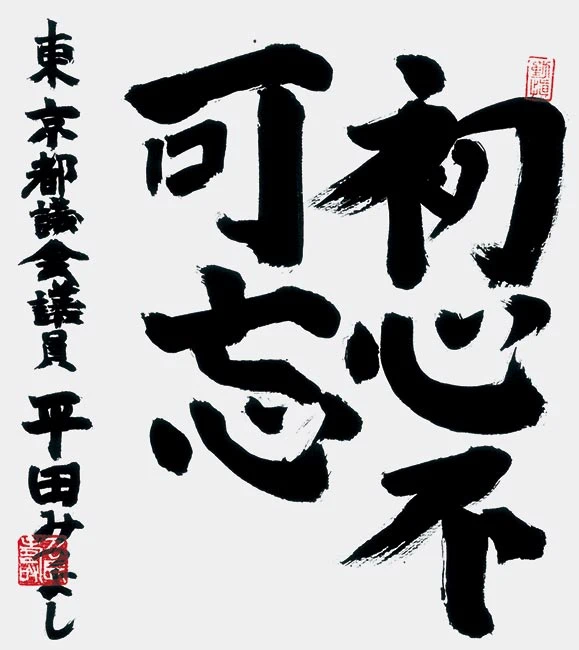 初心不
可忘
東京都議会議員 平田みつよし